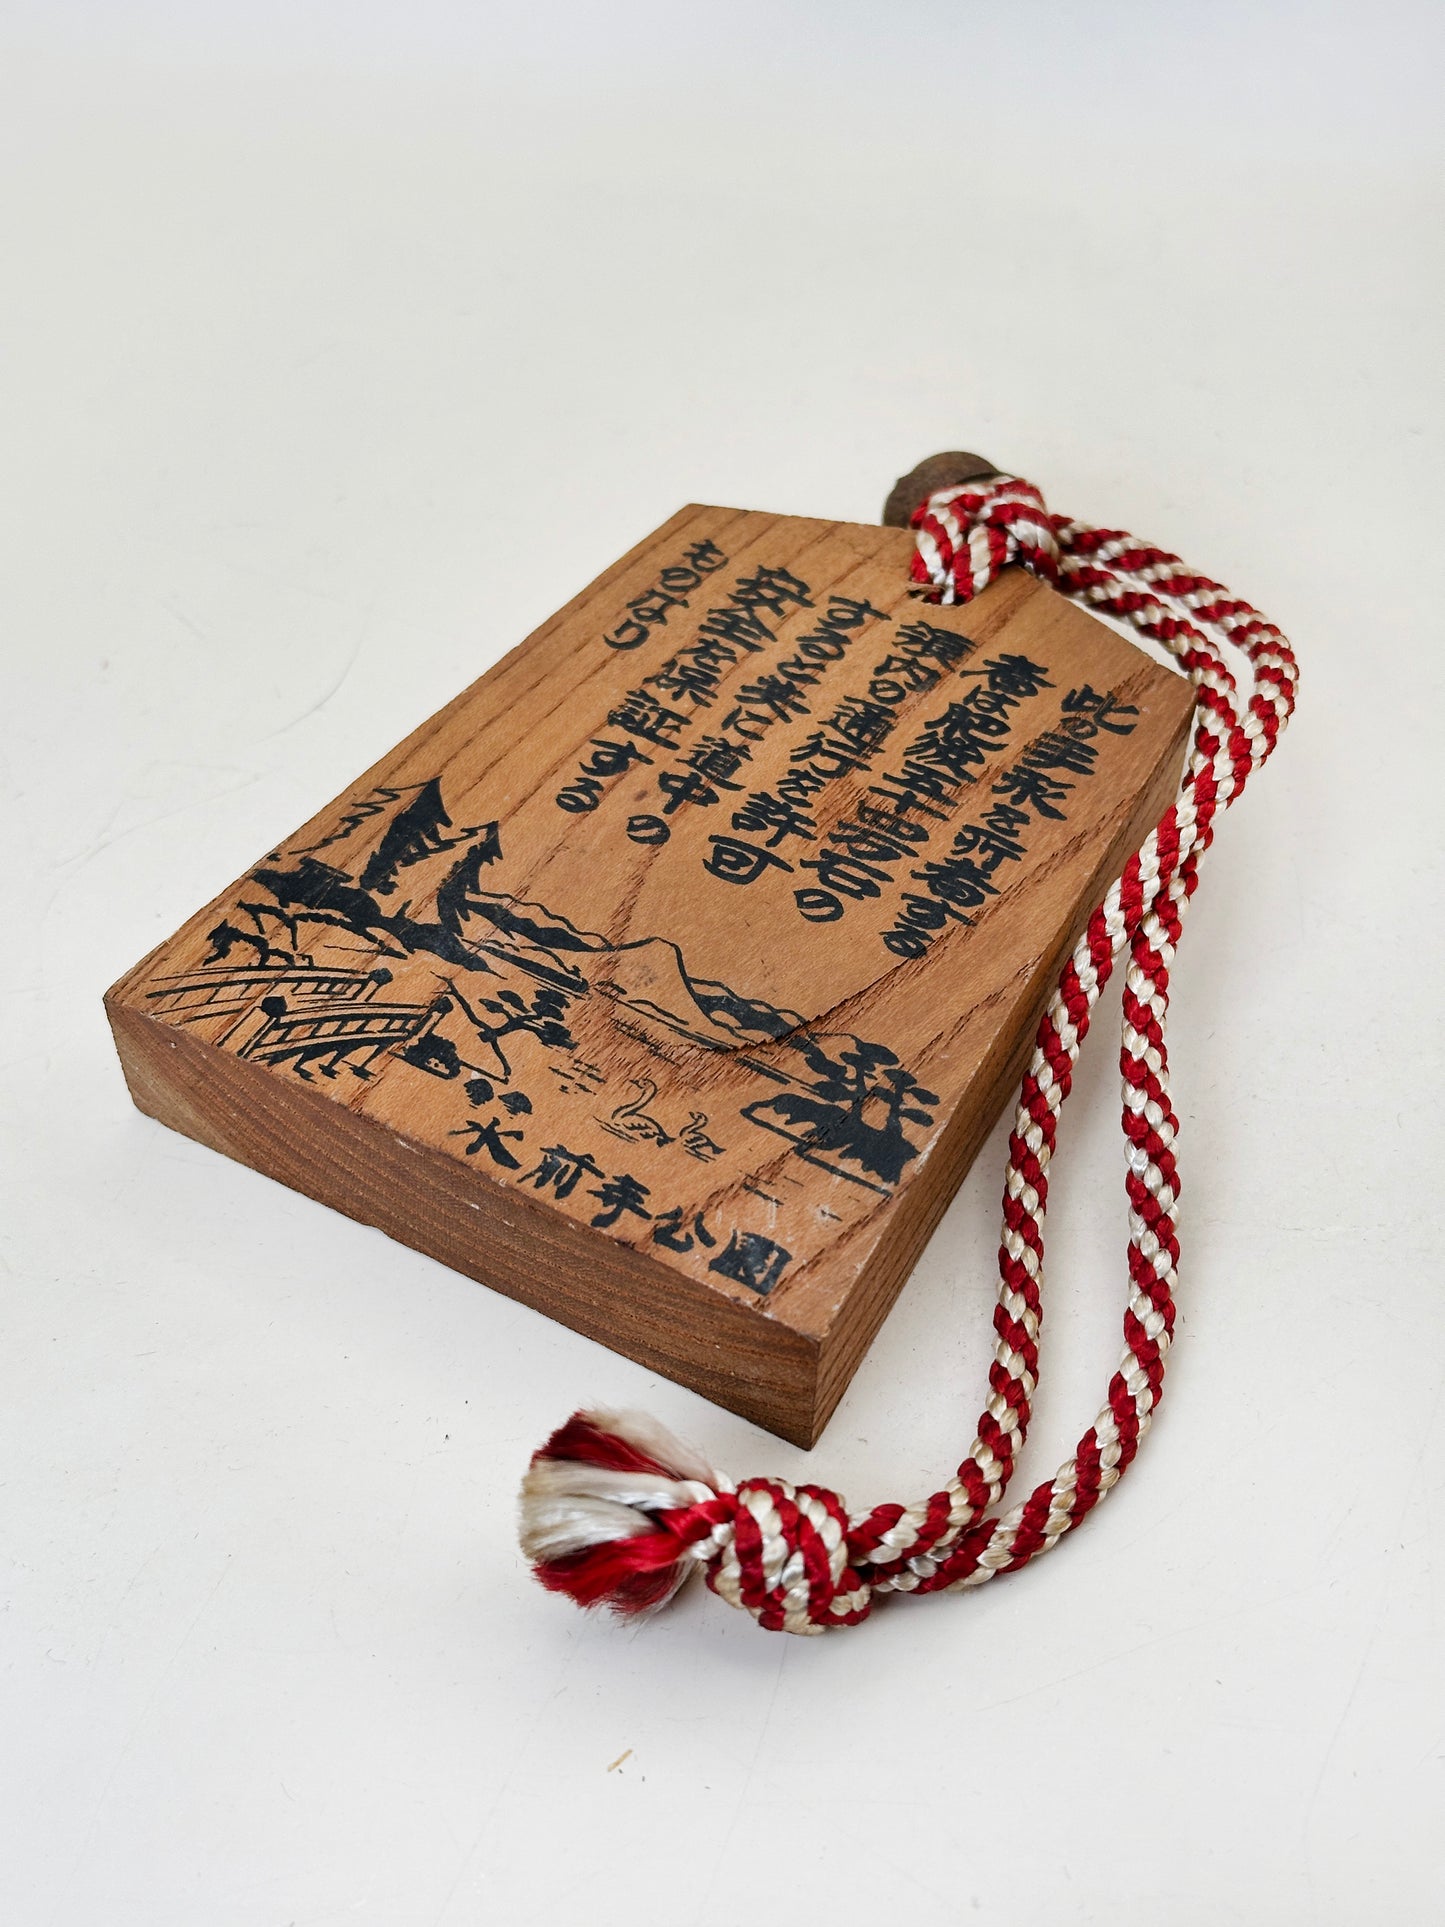 此の手永を所有する
者は肥後五十四万石の
領内の通行を許可
すると共に道中の
安全を保証する
ものなり
水前寺公園